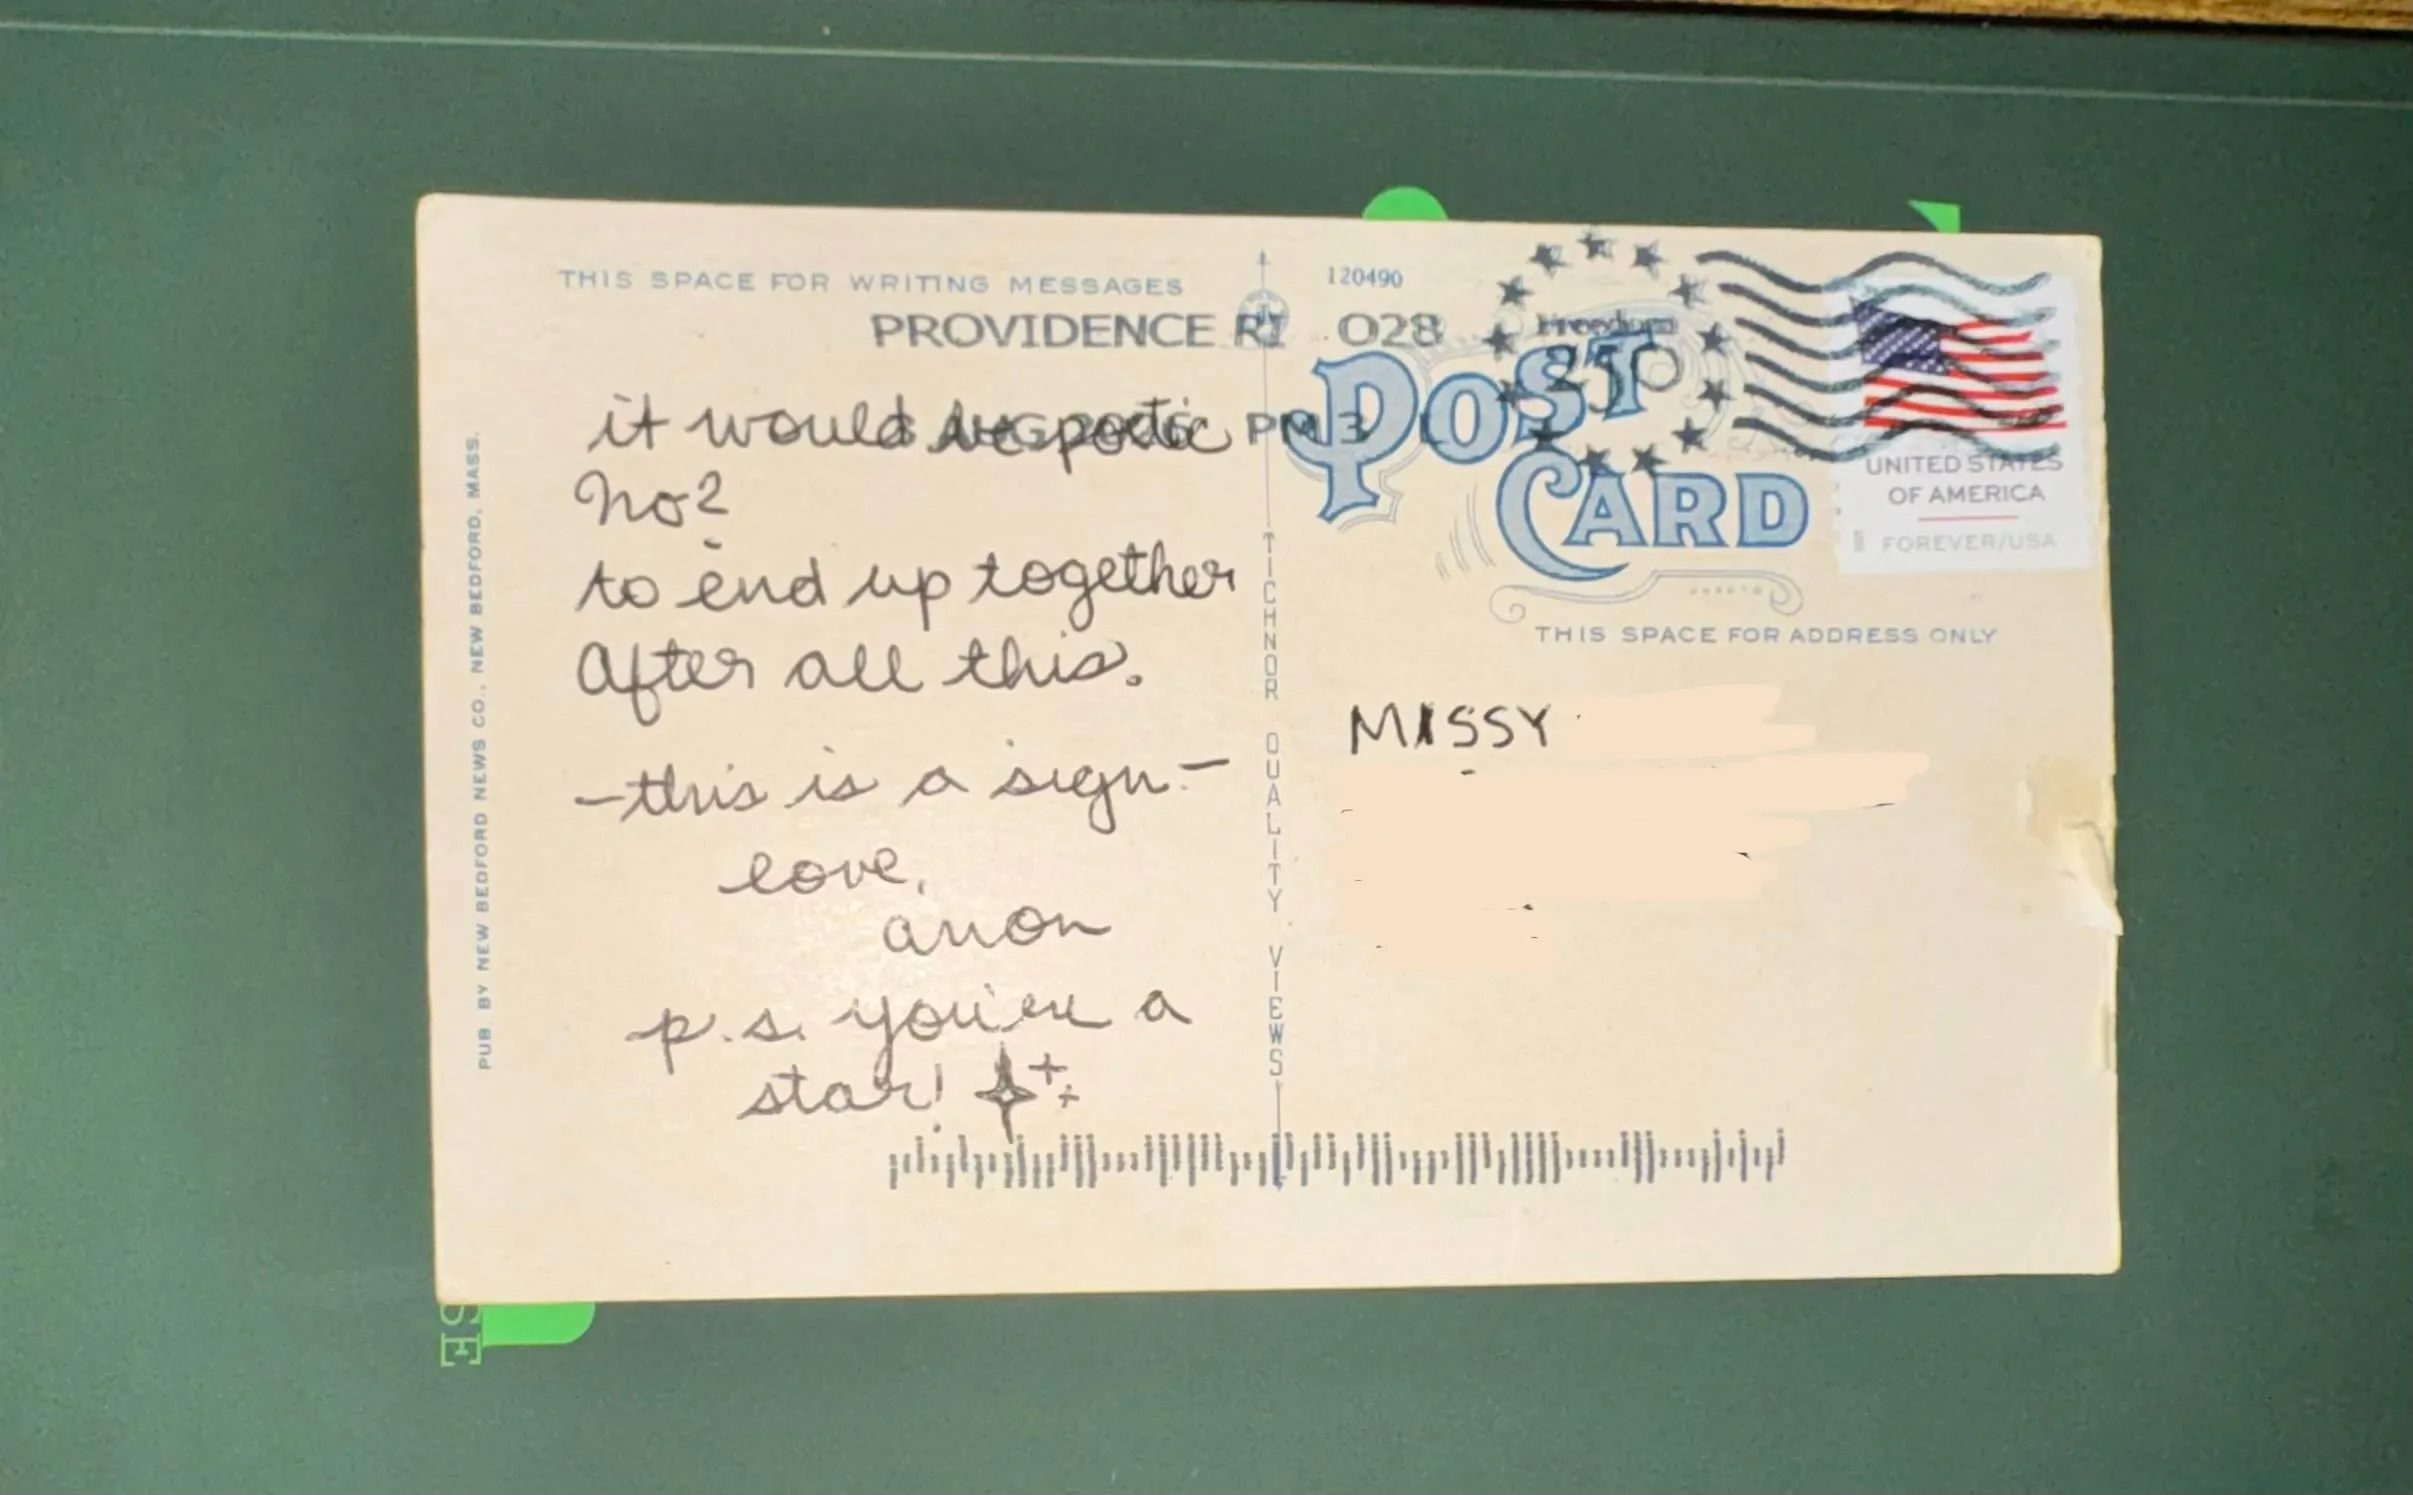 THIS SPACE FOR WRITING MESSAGES
120490
PROVIDENCE RI 028
AUG 2026 PM 3 L
Freedom
250
POST
CARD
UNITED STATES
OF AMERICA
FOREVER/USA
THIS SPACE FOR ADDRESS ONLY
it would be poetic
No?
to end up together
After all this.
-this is a sign-
love,
anon
p.s. you're a
star!
MISSY
TICHNOR QUALITY VIEWS
PUB BY NEW BEDFORD NEWS CO., NEW BEDFORD, MASS.
SE